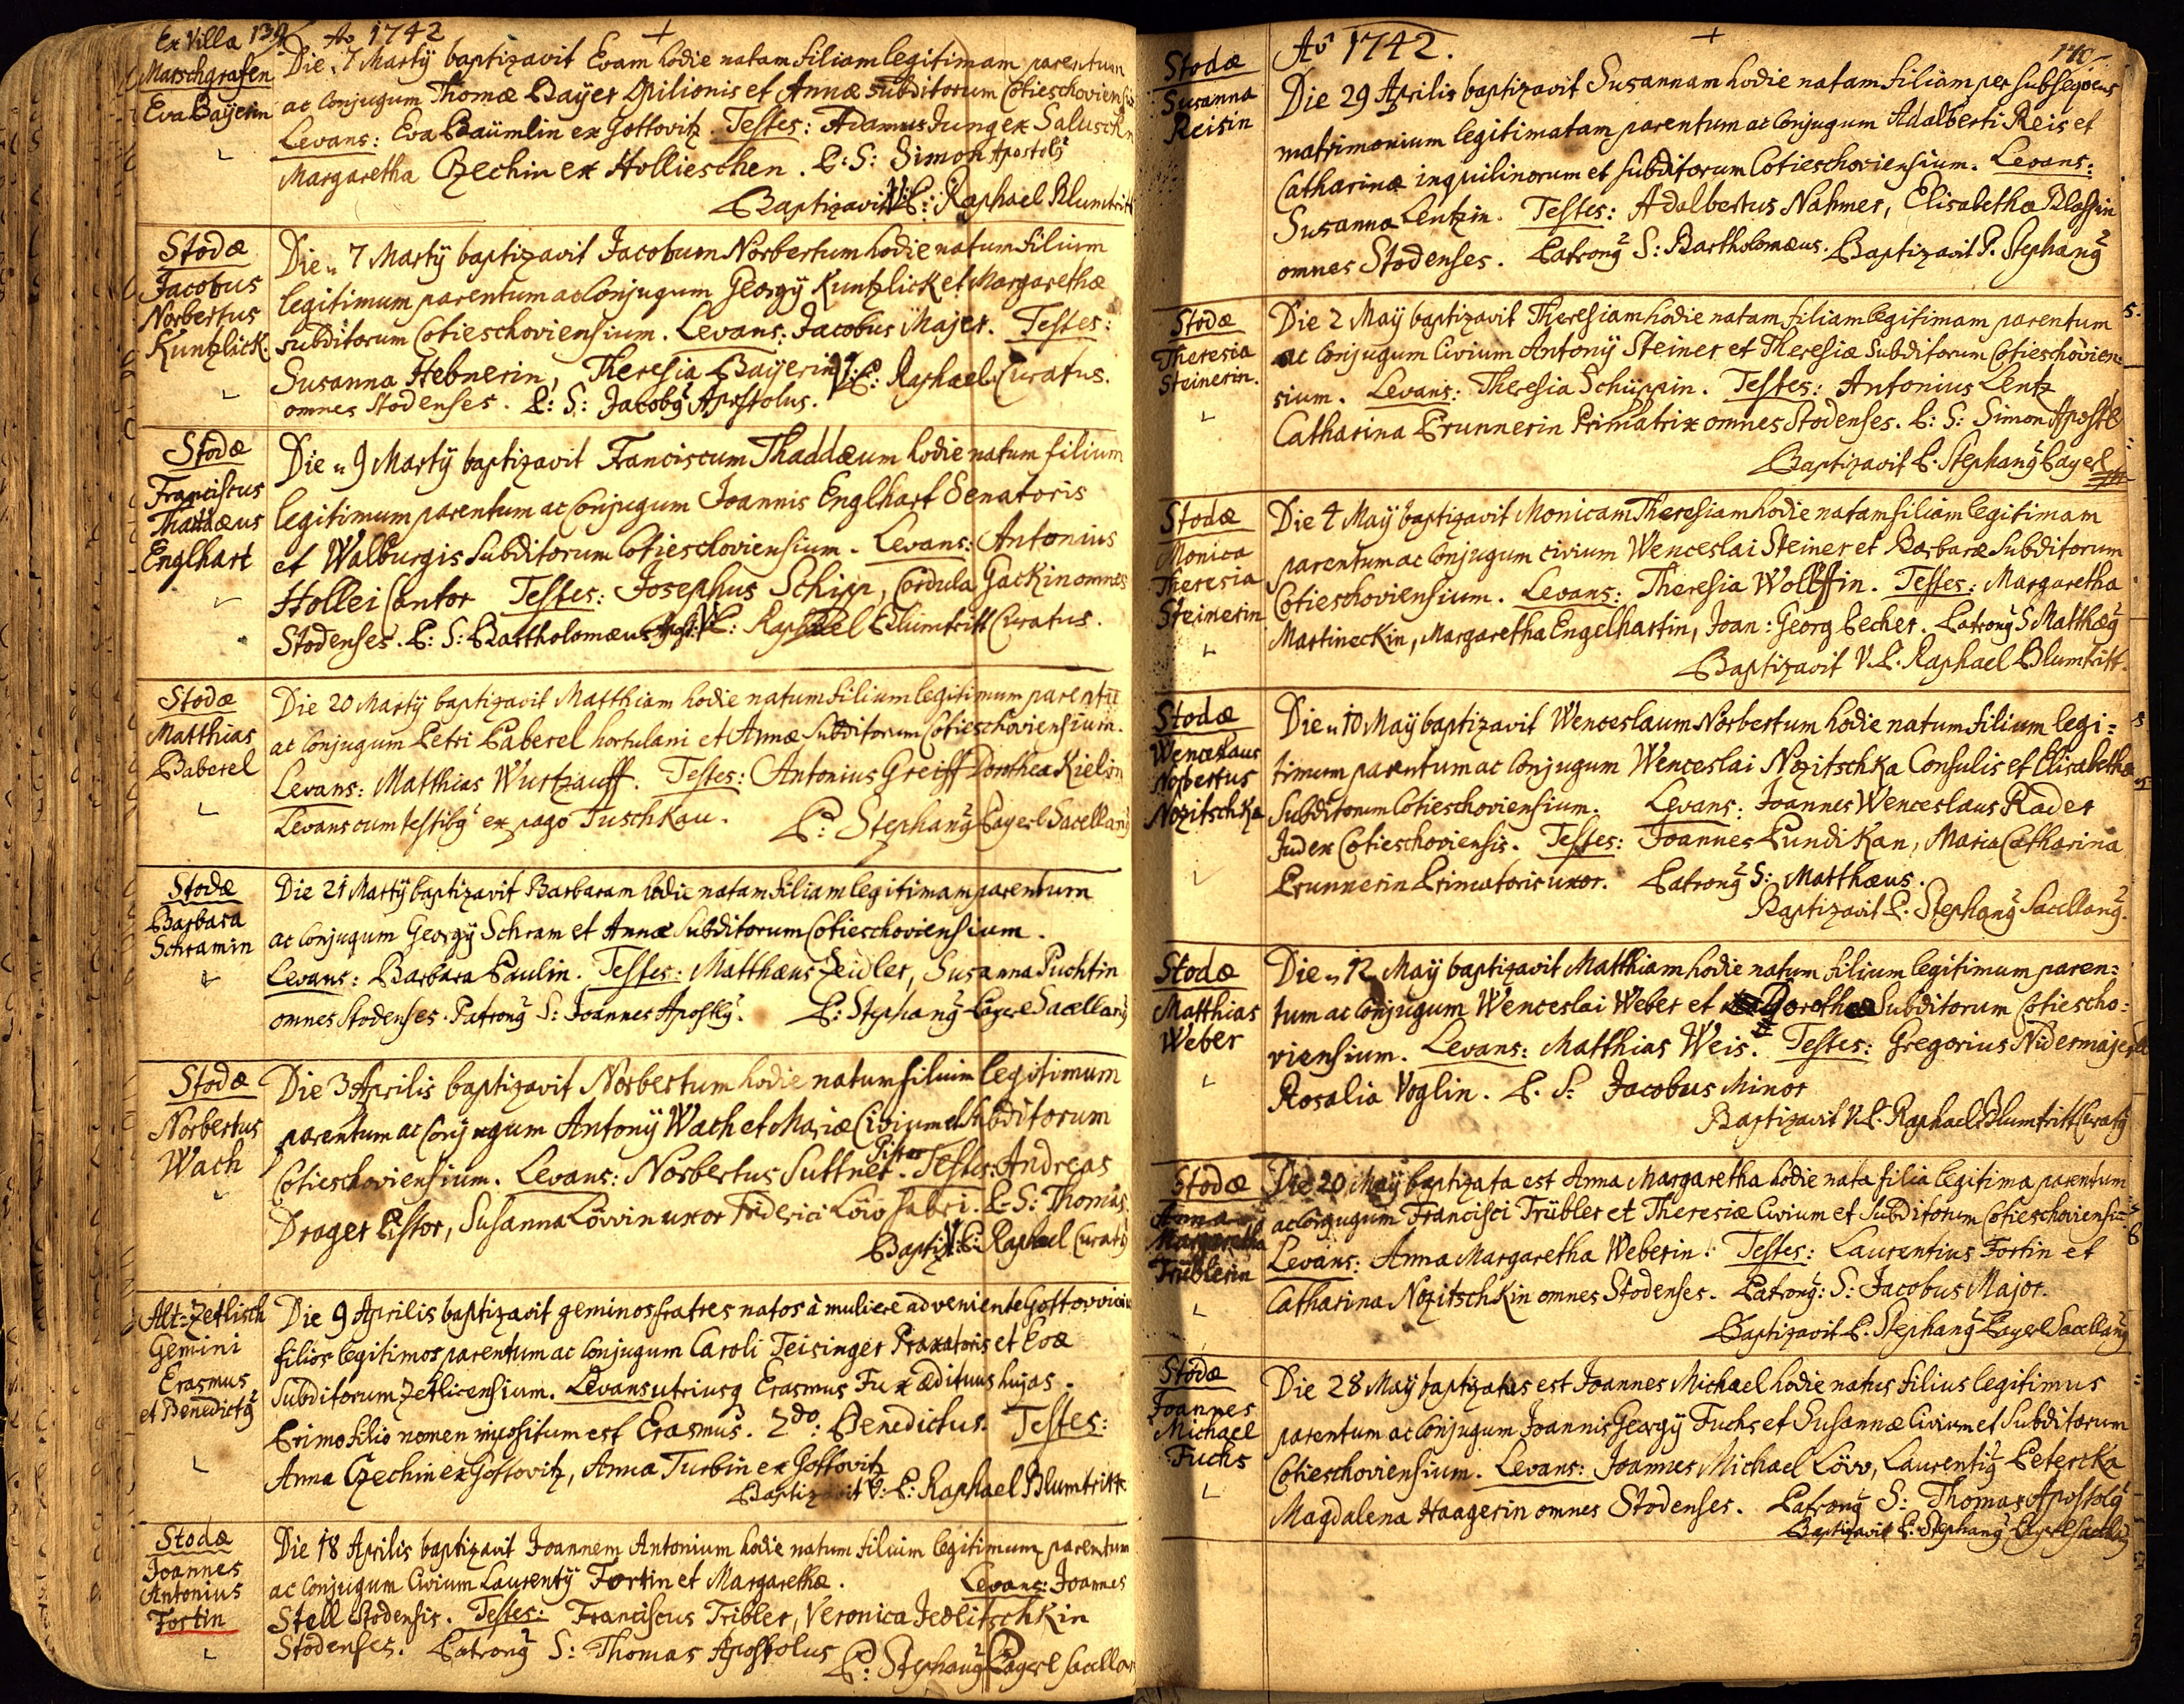 Ex Villa 139 Ao 1742 +
Matschgrafen
Eva Bayerin
Die 7 Martÿ baptizavit Evam hodie natam filiam legitimam parentum
ac Conjugum Thomæ Bayer Opilionis et Annæ subditorum Cotieschovien
Levans: Eva Baümlin ex Gottovitz. Testes: Adamus Jung ex
Margaretha Czechin ex Hollieschen. P: S: Simon Apostolꝰ
Baptizavit V: P: Raphael Blumtritt
Stodæ
Jacobus
Norbertus
Kuntzlick
Die 7 Martÿ baptizavit Jacobum Norbertum hodie natum filium
legitimum parentum ac Conjugum Georgÿ Kuntzlick et Margarethæ
subditorum Cotieschoviensium. Levans: Jacobus Majer. Testes:
Susanna Hebnerin, Theresia Baÿerin V: P: Raphael Curatus.
omnes Stodenses. P: S: Jacobꝰ Apostolus.
Stodæ
Franciscus
Thaddæus
Englhart
Die 9 Martÿ baptizavit Franciscum Thaddæum hodie natum filium
legitimum parentum ac Conjugum Joannis Englhart Senatoris
et Walburgis subditorum Cotieschoviensium. Levans: Antonius
Hollei Cantor Testes: Josephus Schipp, Cordula Gackin omnes
Stodenses. P: S: Bartholomæus Apost: V: P: Raphael Blumtritt Curatus.
Stodæ
Matthias
Paberel
Die 20 Martÿ baptizavit Matthiam hodie natum filium legitimum parentū
ac Conjugum Petri Paberel hortulani et Annæ Subditorum Cotieschoviensium.
Levans: Matthias Wurtzauff. Testes: Antonius Greiff Dorothea Kielin
Levans cum testibꝰ ex pago Tuschkau. P: Stephanꝰ Payerl Sacellanꝰ
Stodæ
Barbara
Schramin
Die 21 Martÿ baptizavit Barbaram hodie natam filiam legitimam parentum
ac Conjugum Georgÿ Schram et Annæ Subditorum Cotieschoviensium.
Levans: Barbara Paulin. Testes: Matthæus Zeidler, Susanna Puchtin
omnes Stodenses. Patronꝰ S: Joannes Apostlꝰ. P: Stephanꝰ Payerl Sacellanꝰ
Stodæ
Norbertus
Wach
Die 3 Aprilis baptizavit Norbertum hodie natum filium legitimum
parentum ac Conjugum Antonÿ Wach et Mariæ Civium et Subditorum
Cotieschoviensium. Levans: Norbertus Suttner Pistor. Testes: Andreas
Drager Pistor, Susanna Lövvin uxor Friderici Löw fabri. P: S: Thomas
Baptiz: V: P: Raphael Curatꝰ
Alt=Zetlisch
Gemini
Erasmus
et Benedictꝰ
Die 9 Aprilis baptizavit geminos fratres natos à muliere adveniente
filios legitimos parentum ac Conjugum Caroli Teisinger Praxatoris et Evæ
Subditorum Zetlicensium. Levans utriusq Erasmus Fux ædituus hujas.
Primo filio nomen impositum est Erasmus. 2do: Benedictus. Testes:
Anna Czechin ex Gottovitz, Anna Turbin ex Gottovitz
Baptizavit V: P: Raphael Blumtritt
Stodæ
Joannes
Antonius
Fortin
Die 18 Aprilis baptizavit Joannem Antonium hodie natum filium legitimum parentum
ac Conjugum Civium Laurentÿ Fortin et Margarethæ. Levans: Joannes
Stell Stodensis. Testes: Franciscus Tribler, Veronica Jedlitschkin
Stodenses. Patronꝰ S: Thomas Apostolus P: Stephanꝰ Payerl Sacellan
Ao 1742. + 140
Stodæ
Susanna
Reisin
Die 29 Aprilis baptizavit Susannam hodie natam filiam per subsequens
matrimonium legitimatam parentum ac Conjugum Adalberti Reis et
Catharinæ inquilinorum et subditorum Cotieschoviensium. Levans:
Susanna Lentzin. Testes: Adalbertus Nahmer, Elisabetha Blassin
omnes Stodenses. Patronꝰ S: Bartholomæus. Baptizavit P. Stephanꝰ
Stodæ
Theresia
Steinerin.
Die 2 Maÿ baptizavit Theresiam hodie natam filiam legitimam parentum
ac Conjugum Civium Antonÿ Steiner et Theresiæ Subditorum Cotieschovien=
sium. Levans: Theresia Schüppin. Testes: Antonius Lentz
Catharina Prunnerin Primatrix omnes Stodenses. P: S: Simon Apostl
Baptizavit P. Stephanꝰ Payerl
Stodæ
Monica
Theresia
Steinerin
Die 4 Maÿ baptizavit Monicam Theresiam hodie natam filiam legitimam
parentum ac Conjugum civium Wenceslai Steiner et Barbaræ Subditorum
Cotieschoviensium. Levans: Theresia Wolffin. Testes: Margaretha
Martineckin, Margaretha Engelhartin, Joan: Georg Pecher. Patronꝰ S Matthæꝰ
Baptizavit V. P. Raphael Blumtritt.
Stodæ
Wenceslaus
Norbertus
Nozitschka
Die 10 Maÿ baptizavit Wenceslaum Norbertum hodie natum filium legi=
timum parentum ac Conjugum Wenceslai Nozitschka Consulis et Elisabethæ
Subditorum Cotieschoviensium. Levans: Joannes Wenceslaus Rader
Judex Cotieschoviensis. Testes: Joannes Pundikan, Maria Catharina
Prunnerin Primatoris uxor. Patronꝰ S: Matthæus.
Baptizavit P. Stephanꝰ Sacellanꝰ.
Stodæ
Matthias
Weber
Die 12 Maÿ baptizavit Matthiam hodie natum filium legitimum paren=
tum ac Conjugum Wenceslai Weber et Dorotheæ Subditorum Cotiescho=
viensium. Levans: Matthias Weis. Testes: Gregorius Nidermajer
Rosalia Voglin. P. S: Jacobus Minor
Baptizavit V. P. Raphael Blumtritt Curatꝰ
Stodæ
Anna
Margaretha
Trüblerin
Die 20 Maÿ baptizata est Anna Margaretha hodie nata filia legitima parentum
ac Conjugum Francisci Trübler et Theresiæ Civium et Subditorum Cotieschoviensiū
Levans: Anna Margaretha Weberin. Testes: Laurentius Fortin et
Catharina Nozitschkin omnes Stodenses. Patronꝰ: S: Jacobus Major.
Baptizavit P. Stephanꝰ Payerl Sacellanꝰ
Stodæ
Joannes
Michael
Fuchs
Die 28 Maÿ baptizatus est Joannes Michael hodie natus filius legitimus
parentum ac Conjugum Joannis Georgÿ Fuchs et Susannæ Civium et Subditorum
Cotieschoviensium. Levans: Joannes Michael Lövv, Laurentiꝰ Peterka
Magdalena Haagerin omnes Stodenses. Patronꝰ S: Thomas Apostolꝰ
Baptizavit P: Stephanꝰ Payerl Sacellꝰ